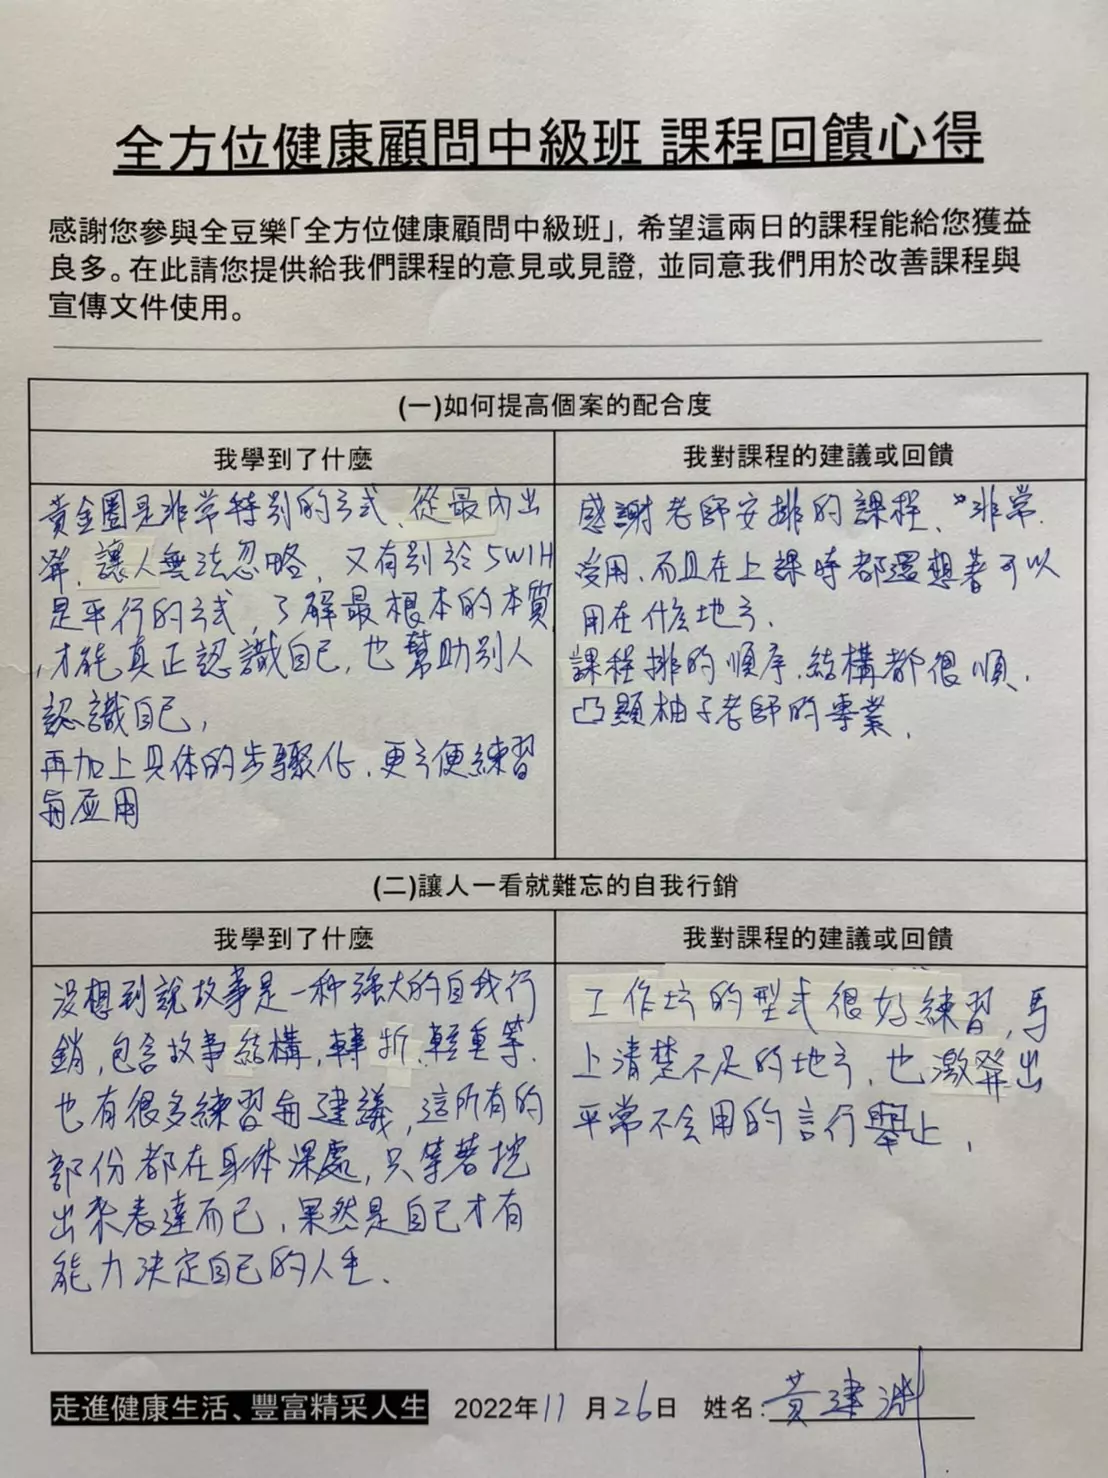 全方位健康顧問中級班 課程回饋心得
感謝您參與全豆樂「全方位健康顧問中級班」, 希望這兩日的課程能給您獲益
良多。在此請您提供給我們課程的意見或見證, 並同意我們用於改善課程與
宣傳文件使用。
(一)如何提高個案的配合度
我學到了什麼
黃金圈是非常特別的方式、從最內出
發, 讓人無法忽略, 又有別於5W1H
是平行的方式, 了解最根本的本質
, 才能真正認識自己, 也幫助別人
認識自己,
再加上具体的步驟化, 更方便練習
與應用
我對課程的建議或回饋
感謝老師安排的課程、非常
受用, 而且在上課時都還想著可以
用在什麼地方,
課程排的順序、結構都很順,
凸顯柚子老師的專業,
(二)讓人一看就難忘的自我行銷
我學到了什麼
沒想到說故事是一種強大的自我行
銷, 包含故事結構, 轉折, 輕重等,
也有很多練習與建議, 這所有的
部份都在身体深處, 只等著挖
出來表達而已, 果然是自己才有
能力決定自己的人生、
我對課程的建議或回饋
工作坊的型式很好練習, 馬
上清楚不足的地方, 也激發出
平常不会用的言行舉止,
走進健康生活、豐富精采人生 2022年11月26日 姓名:黃建淵